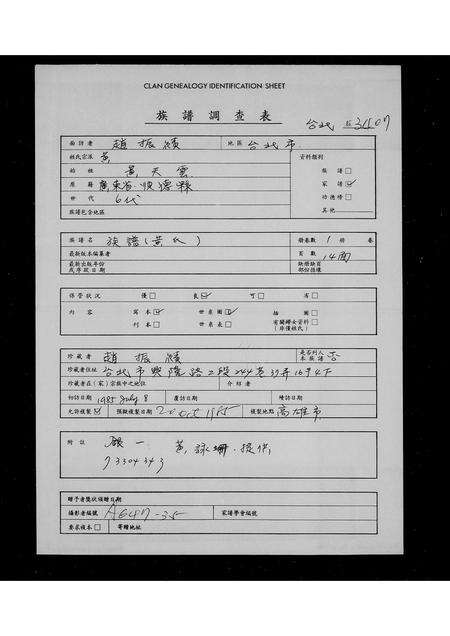 CLAN GENEALOGY IDENTIFICATION SHEET
族譜調查表
台北
面訪者 趙振績 地區 台北市
姓氏宗派 黃 資料類別
始祖 黃天雲 族譜□
原籍 廣東省 縣 家譜☑
世代 6代 功德榜□
族譜包含地區 其他
族譜名 族譜(黃氏) 冊卷數 1 冊 卷
最新版本編纂者 頁數 14面
最新出版年份 缺冊缺頁
或序跋日期 部份損壞
保管狀況 優□ 良☑ 可□ 劣□
內容 寫本☑ 世系圖☑ 插圖□
刊本□ 世系表□ 有關婦女資料□
(非僅姓氏)
珍藏者 趙振績 是否列入本族譜 否
珍藏者住址 台北市興隆路二段244巷37弄16号4F
珍藏者在(家)宗族中之地位 介紹者
初訪日期 1985 July 8 覆訪日期 陸訪日期
允許複製☑ 預擬複製日期 20 Oct 1985 複製地點 高雄市
附註 一 黃詠珊.提供
93304343
贈予者獎狀頒贈日期
攝影者編號 A647-35 家譜學會編號
要求複本□ 寄贈地址